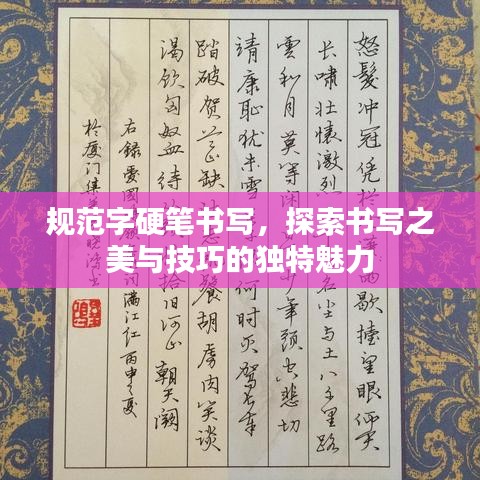 规范字硬笔书写，探索书写之
美与技巧的独特魅力
怒髮冲冠凭雨歇擡望眼仰天
长啸壮懷激烈名尘与土八千里路
雲和月莫等闲少年頭空悲切
靖康恥犹未雪何时灭驾长车
踏破贺兰山缺餐胡虏肉笑谈
渴饮匈奴血待拾旧河山朝天阙
右録爱國词满江红丙申之夏
於厦门